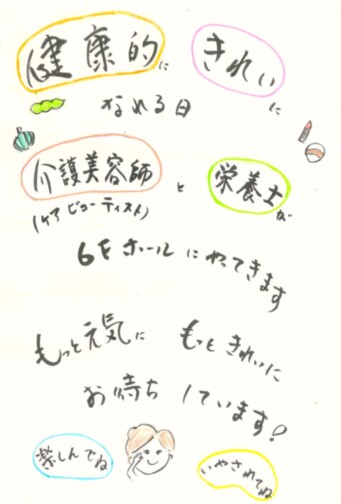 健康的に きれいに
なれる日
介護美容師と 栄養士が
(ケア ビューティスト)
6Fホールにやってきます
もっと元気に もっときれいに
お待ちしています!
楽しんでね いやされてね